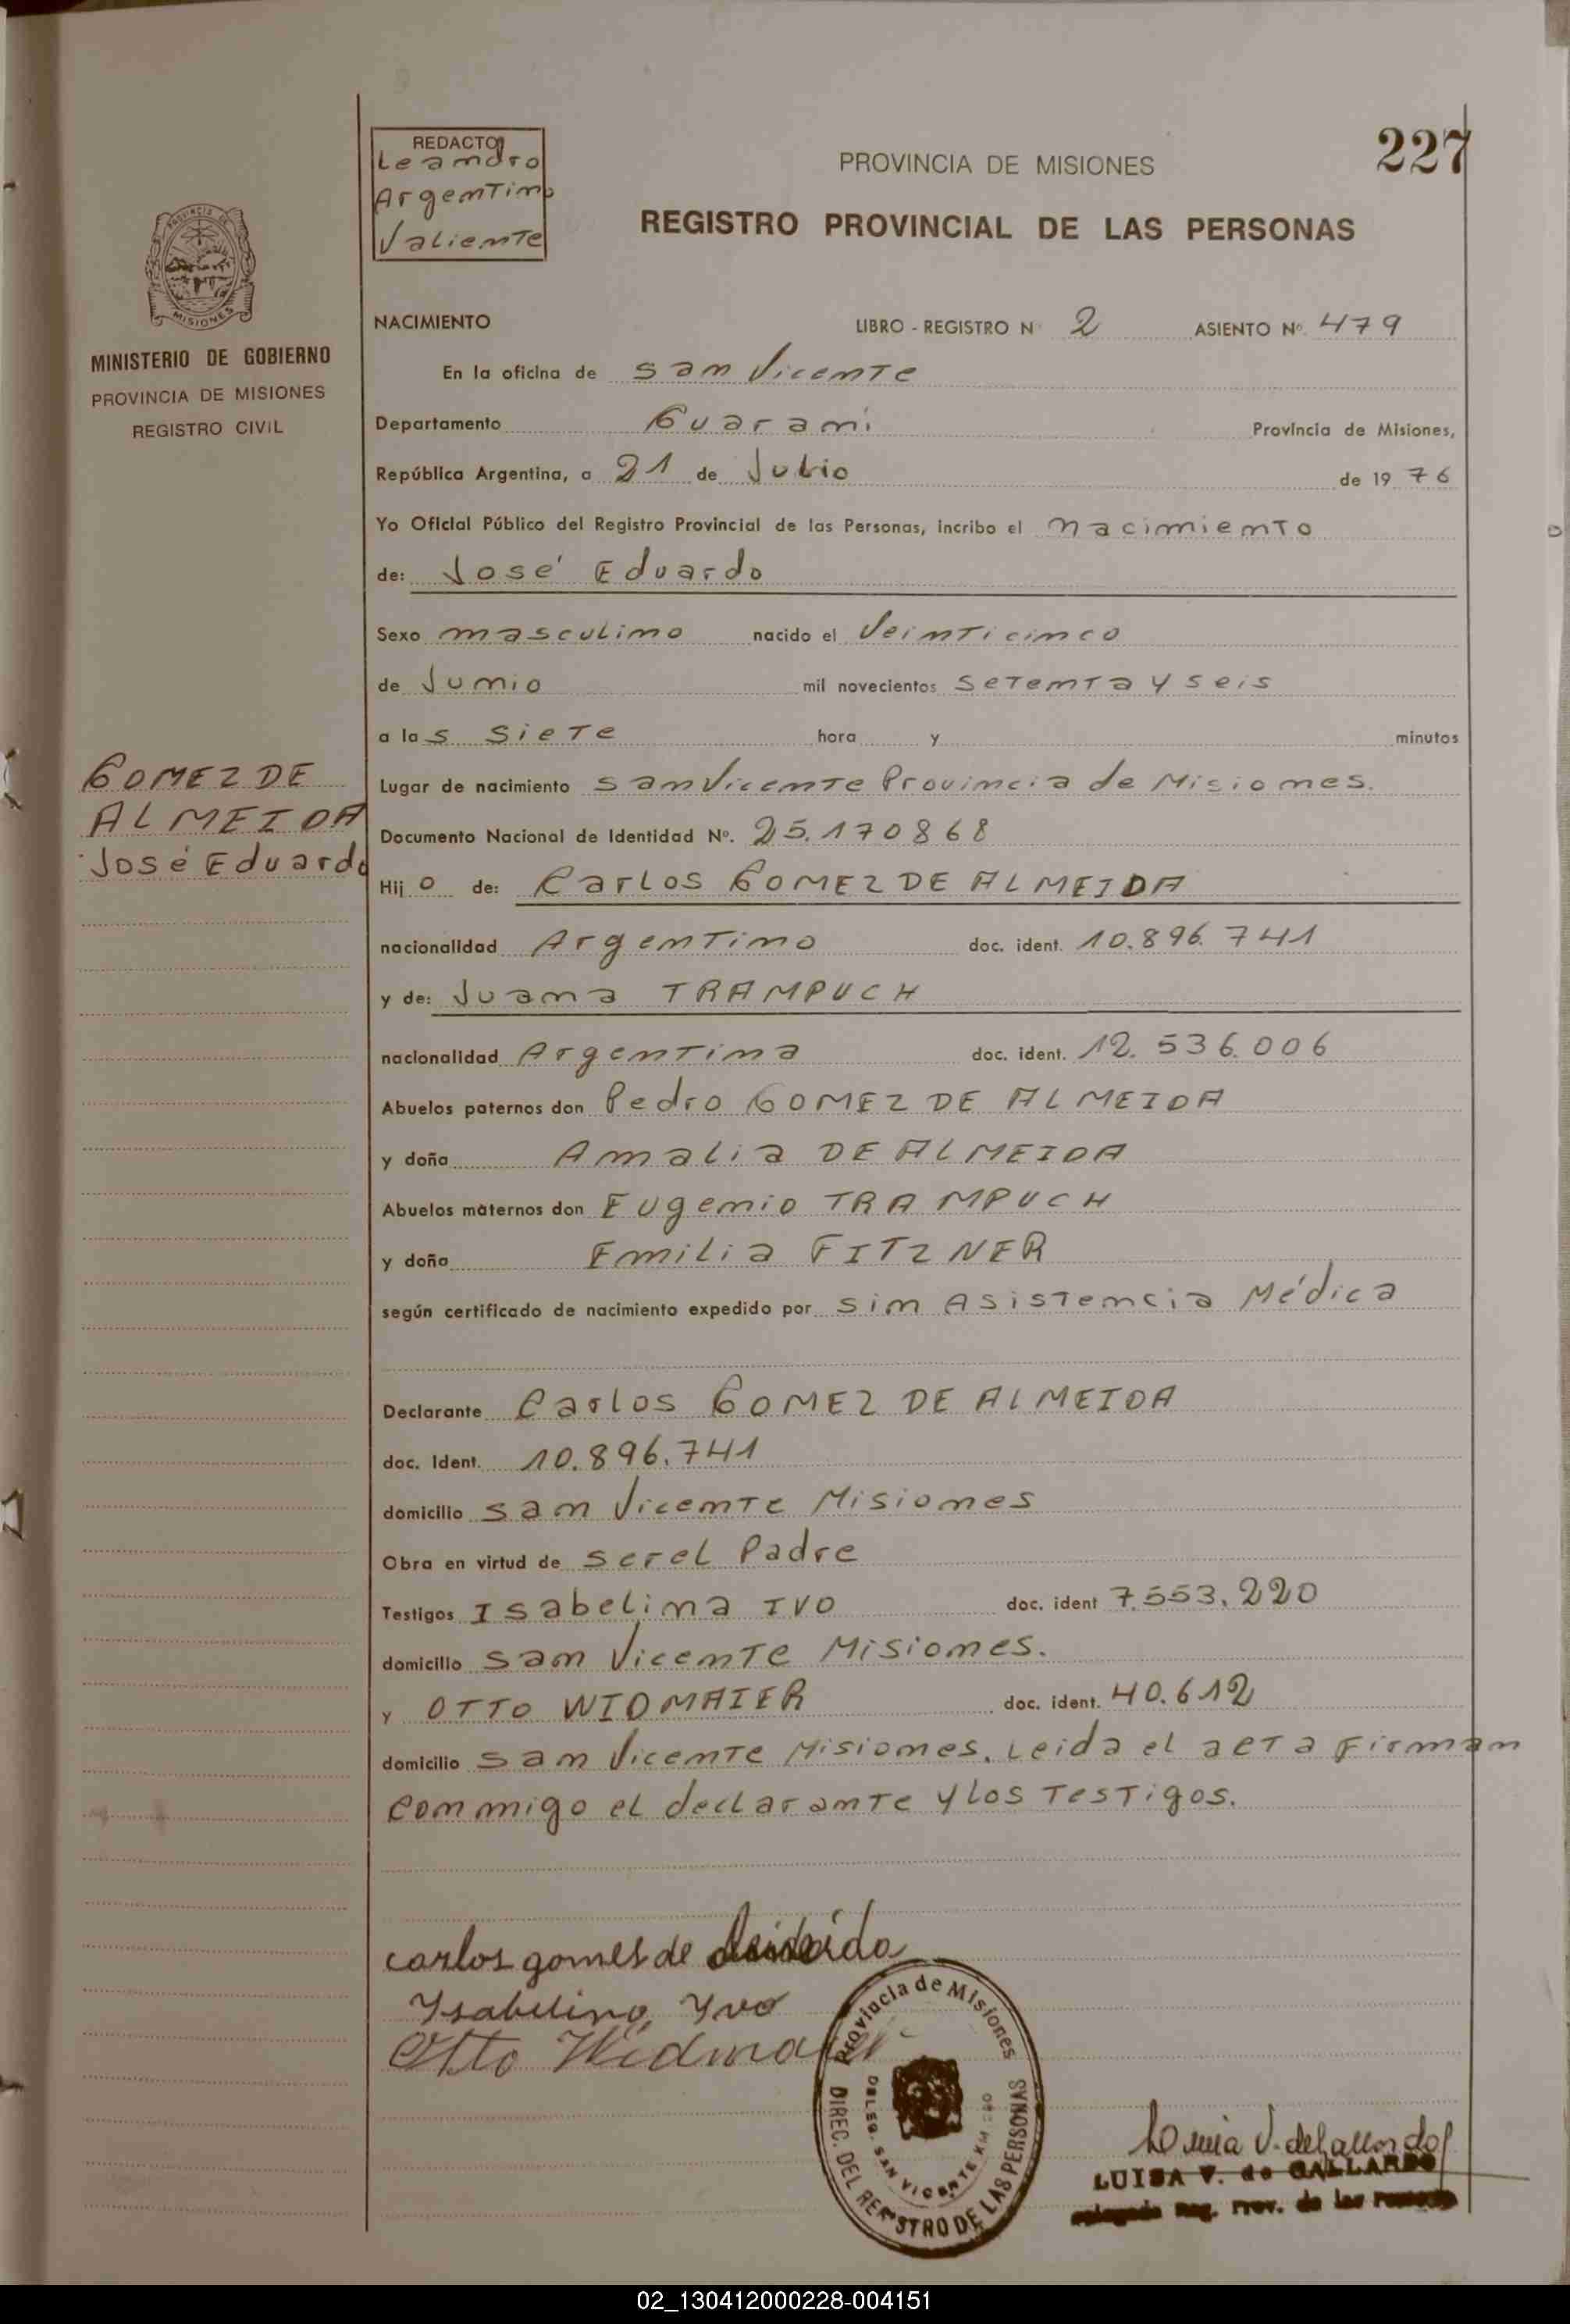 REDACTO
Leandro
Argentino
Valiente
PROVINCIA DE MISIONES
227
REGISTRO PROVINCIAL DE LAS PERSONAS
PROVINCIA DE
MISIONES
MINISTERIO DE GOBIERNO
PROVINCIA DE MISIONES
REGISTRO CIVIL
NACIMIENTO LIBRO - REGISTRO Nº 2 ASIENTO Nº 479
En la oficina de San Vicente
Departamento Guarani Provincia de Misiones,
República Argentina, a 21 de Julio de 1976
Yo Oficial Público del Registro Provincial de las Personas, incribo el nacimiento
de: José Eduardo
Sexo masculino nacido el Veinticinco
de Junio mil novecientos setenta y seis
a las siete hora y minutos
GOMEZ DE
ALMEIDA
José Eduardo
Lugar de nacimiento San Vicente Provincia de Misiones.
Documento Nacional de Identidad Nº. 25.170868
Hijo de: Carlos GOMEZ DE ALMEIDA
nacionalidad Argentino doc. ident. 10.896.741
y de: Juana TRAMPUCH
nacionalidad Argentina doc. ident. 12.536.006
Abuelos paternos don Pedro GOMEZ DE ALMEIDA
y doña Amalia DE ALMEIDA
Abuelos maternos don Eugenio TRAMPUCH
y doña Emilia FITZNER
según certificado de nacimiento expedido por sin Asistencia Médica
Declarante Carlos GOMEZ DE ALMEIDA
doc. Ident. 10.896.741
domicilio San Vicente Misiones
Obra en virtud de ser el Padre
Testigos Isabelina IVO doc. ident 7.553.220
domicilio San Vicente Misiones.
y OTTO WIDMAIER doc. ident. 40.612
domicilio San Vicente Misiones. Leida el acta firman
conmigo el declarante y los Testigos.
carlos gomes de
Ysabelino Yvo
Otto Widmaier
Provincia de Misiones
DIREC. DEL REGISTRO DE LAS PERSONAS
DELEG. SAN VICENTE KM
Luisa V. de Gallardo
LUISA V. de GALLARDO
Reg. Prov. de las Personas
02_130412000228-004151